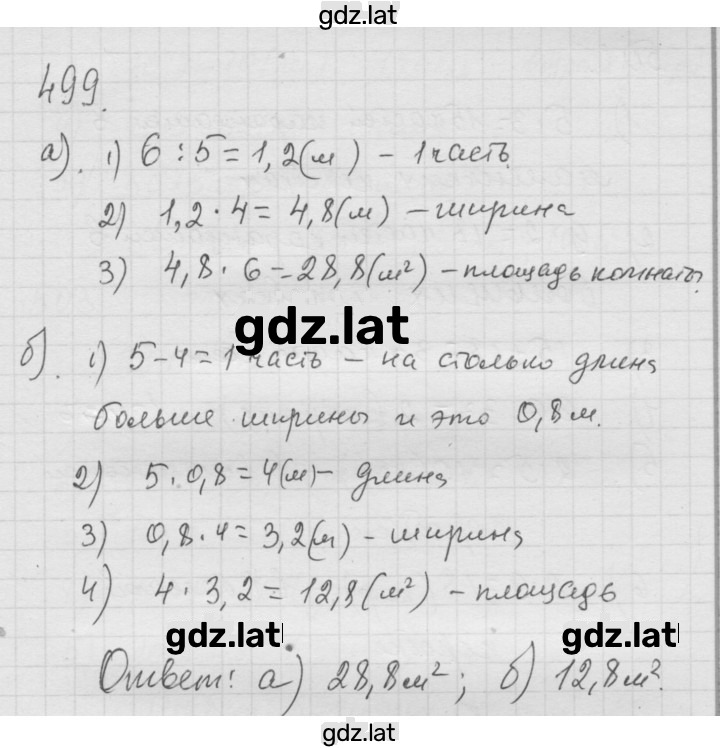 gdz.lat
499.
а). 1) 6 : 5 = 1,2(м) – 1 часть.
2) 1,2 · 4 = 4,8(м) – ширина
3) 4,8 · 6 = 28,8(м²) – площадь комнаты
gdz.lat
б). 1) 5 – 4 = 1 часть – на столько длина
больше ширины и это 0,8 м.
2) 5 · 0,8 = 4(м) – длина
3) 0,8 · 4 = 3,2(м) – ширина
4) 4 · 3,2 = 12,8(м²) – площадь
gdz.lat gdz.lat
Ответ: а) 28,8м²; б) 12,8м².
gdz.lat